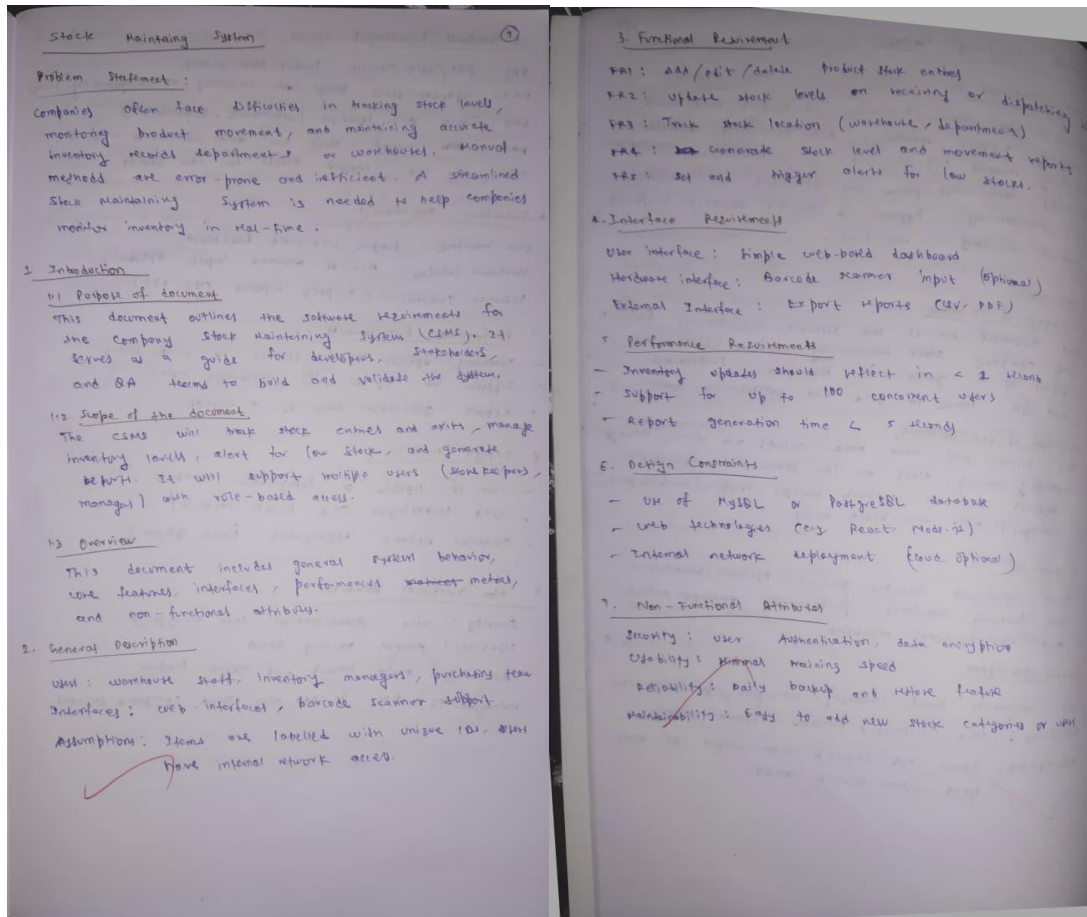 Stock Maintaing System
9
Problem Statement :
Companies often face difficulties in tracking stock levels,
monitoring product movement, and maintaining accurate
inventory records departments or warehouses. Manual
methods are error-prone and inefficient. A streamlined
Stock Maintaining System is needed to help companies
monitor inventory in real-time.
1 Introduction
1.1 Purpose of document
This document outlines the software requirements for
the company Stock Maintaining System (CSMS). It
serves as a guide for developers, stakeholders,
and QA teams to build and validate the system.
1.2 Scope of the document
The CSMS will track stock entries and exits, manage
inventory levels, alert for low stock, and generate
reports. It will support multiple users (storekeepers,
managers) with role-based access.
1.3 Overview
This document includes general system behavior,
core features, interfaces, performances metrics,
and non-functional attributes.
2. General Description
Users : warehouse staff, Inventory managers, purchasing team
Interfaces : web interfaces, barcode scanner support
Assumptions : Items are labelled with unique IDs.
have internal network access.
3. Functional Requirement
FR1 : Add/edit/delete product stock entries
FR2 : update stock levels on receiving or dispatching
FR3 : Track stock location (warehouse, department)
FR4 : Generate stock level and movement reports
FR5 : set and trigger alerts for low stocks.
4. Interface Requirements
User interface : Simple web-based dashboard
Hardware interface : Barcode scanner input (optional)
External Interface : Export reports (CSV, PDF)
5. Performance Requirements
- Inventory updates should reflect in < 2 seconds
- Support for up to 100 concurrent users
- Report generation time < 5 seconds
6. Design Constraints
- Use of MySQL or PostgreSQL database
- web technologies (e.g. React, Node.js)
- Internal network deployment (cloud optional)
7. Non-Functional Attributes
Security : User Authentication, data encryption
Usability : Minimal training speed
Reliability : Daily backup and restore feature
Maintainability : Easy to add new stock categories or